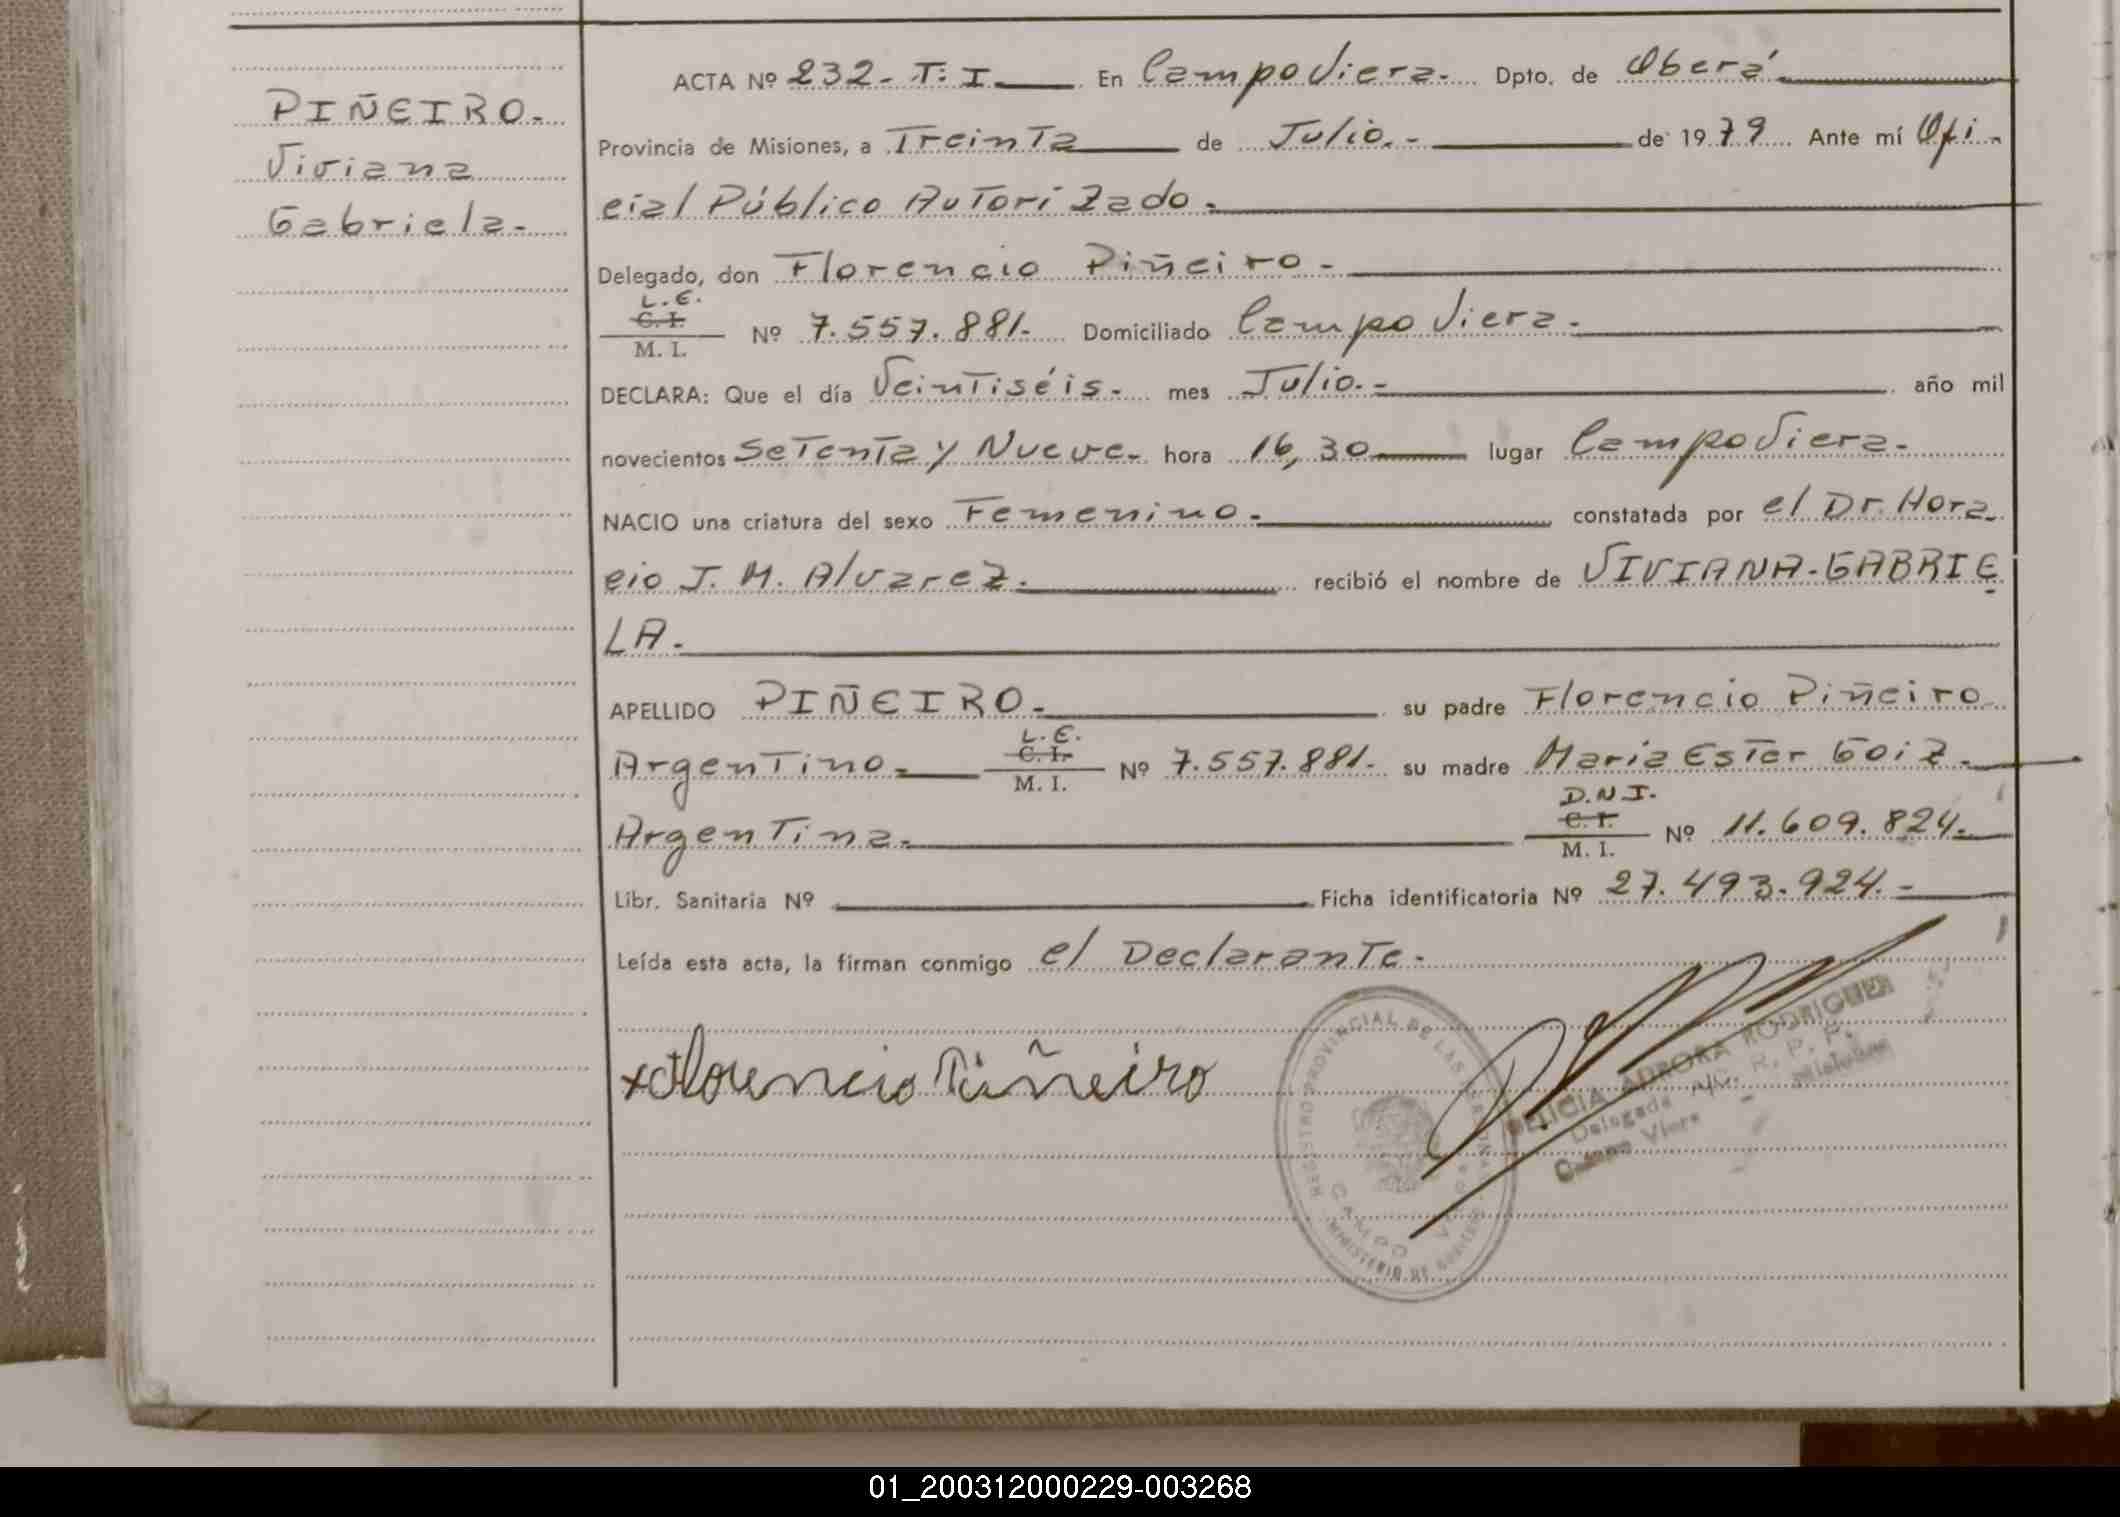 PIÑEIRO.
Viviana
Gabriela.
ACTA Nº 232. T. I. En Campo Viera. Dpto. de Oberá
Provincia de Misiones, a Treinta de Julio. de 1979 Ante mí Ofi
cial Público Autorizado.
Delegado, don Florencio Piñeiro.
L.E.
C. I.
M. I. Nº 7.557.881. Domiciliado Campo Viera.
DECLARA: Que el día Veintiséis. mes Julio. año mil
novecientos Setenta y Nueve. hora 16,30 lugar Campo Viera.
NACIO una criatura del sexo Femenino. constatada por el Dr. Hora
cio J. M. Alvarez. recibió el nombre de VIVIANA-GABRIE
LA.
APELLIDO PIÑEIRO. su padre Florencio Piñeiro
L.E.
C. I.
Argentino. M. I. Nº 7.557.881. su madre Maria Ester Goiz.
D.N.I.
C. I.
Argentina. M. I. Nº 11.609.824.
Libr. Sanitaria Nº Ficha identificatoria Nº 27.493.924.
Leída esta acta, la firman conmigo el Declarante.
x Florencio Piñeiro
REGISTRO PROVINCIAL DE LAS PERSONAS
CAMPO VIERA
MINISTERIO DE GOBIERNO
DELICIA AURORA RODRIGUEZ
Delegada A/C. R. P. P.
Campo Viera - Misiones
01_200312000229-003268